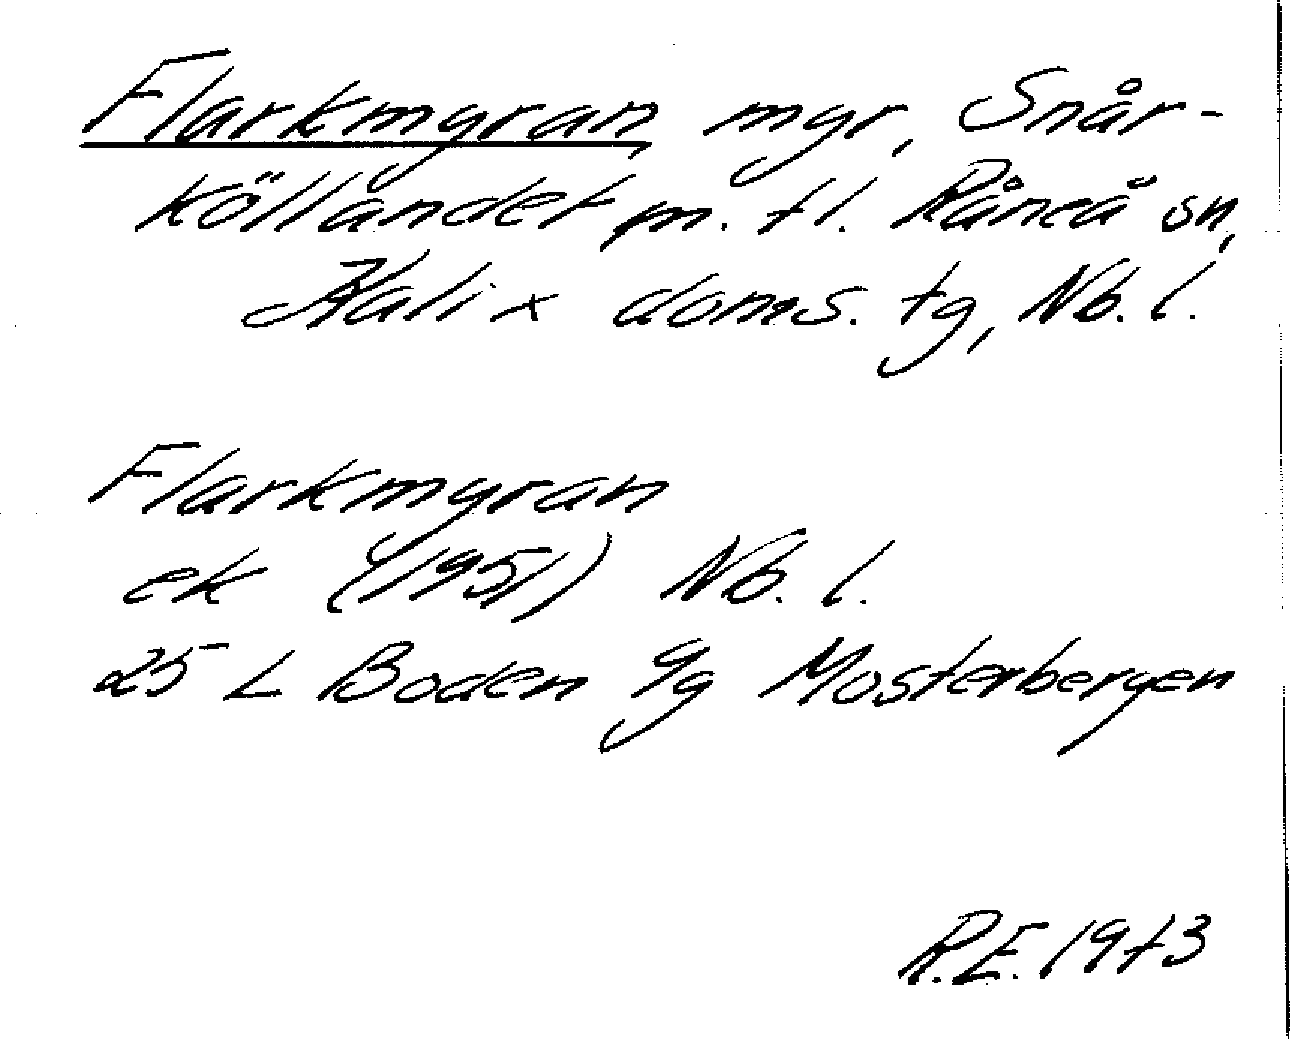 Flarkmyran, myr, Snår-
kölländet m. fl. Råneå sn,
Kalix doms. tg, Nb. l.
Flarkmyran
ek (1951) Nb. l.
25 L Boden 9g Mosterbergen
R.E. 1973